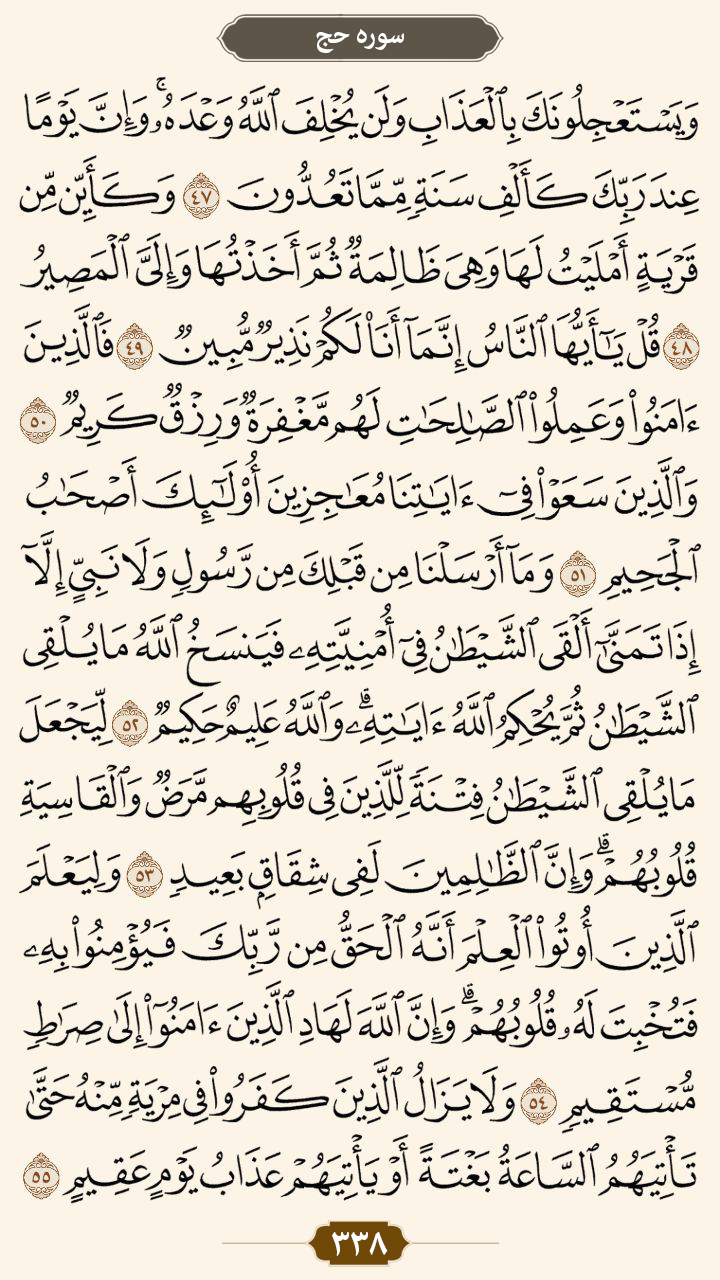 سوره حج
وَيَسْتَعْجِلُونَكَ بِٱلْعَذَابِ وَلَن يُخْلِفَ ٱللَّهُ وَعْدَهُۥۚ وَإِنَّ يَوْمًا
عِندَ رَبِّكَ كَأَلْفِ سَنَةٍۢ مِّمَّا تَعُدُّونَ ٤٧ وَكَأَيِّن مِّن
قَرْيَةٍ أَمْلَيْتُ لَهَا وَهِىَ ظَالِمَةٌۭ ثُمَّ أَخَذْتُهَا وَإِلَىَّ ٱلْمَصِيرُ
٤٨ قُلْ يَـٰٓأَيُّهَا ٱلنَّاسُ إِنَّمَآ أَنَا۠ لَكُمْ نَذِيرٌۭ مُّبِينٌۭ ٤٩ فَٱلَّذِينَ
ءَامَنُوا۟ وَعَمِلُوا۟ ٱلصَّـٰلِحَـٰتِ لَهُم مَّغْفِرَةٌۭ وَرِزْقٌۭ كَرِيمٌۭ ٥٠
وَٱلَّذِينَ سَعَوْا۟ فِىٓ ءَايَـٰتِنَا مُعَـٰجِزِينَ أُو۟لَـٰٓئِكَ أَصْحَـٰبُ
ٱلْجَحِيمِ ٥١ وَمَآ أَرْسَلْنَا مِن قَبْلِكَ مِن رَّسُولٍۢ وَلَا نَبِىٍّ إِلَّآ
إِذَا تَمَنَّىٰٓ أَلْقَى ٱلشَّيْطَـٰنُ فِىٓ أُمْنِيَّتِهِۦ فَيَنسَخُ ٱللَّهُ مَا يُلْقِى
ٱلشَّيْطَـٰنُ ثُمَّ يُحْكِمُ ٱللَّهُ ءَايَـٰتِهِۦۗ وَٱللَّهُ عَلِيمٌ حَكِيمٌۭ ٥٢ لِّيَجْعَلَ
مَا يُلْقِى ٱلشَّيْطَـٰنُ فِتْنَةًۭ لِّلَّذِينَ فِى قُلُوبِهِم مَّرَضٌۭ وَٱلْقَاسِيَةِ
قُلُوبُهُمْۗ وَإِنَّ ٱلظَّـٰلِمِينَ لَفِى شِقَاقٍۭ بَعِيدٍۢ ٥٣ وَلِيَعْلَمَ
ٱلَّذِينَ أُوتُوا۟ ٱلْعِلْمَ أَنَّهُ ٱلْحَقُّ مِن رَّبِّكَ فَيُؤْمِنُوا۟ بِهِۦ
فَتُخْبِتَ لَهُۥ قُلُوبُهُمْۗ وَإِنَّ ٱللَّهَ لَهَادِ ٱلَّذِينَ ءَامَنُوٓا۟ إِلَىٰ صِرَٰطٍۢ
مُّسْتَقِيمٍۢ ٥٤ وَلَا يَزَالُ ٱلَّذِينَ كَفَرُوا۟ فِى مِرْيَةٍۢ مِّنْهُ حَتَّىٰ
تَأْتِيَهُمُ ٱلسَّاعَةُ بَغْتَةً أَوْ يَأْتِيَهُمْ عَذَابُ يَوْمٍ عَقِيمٍ ٥٥
٣٣٨